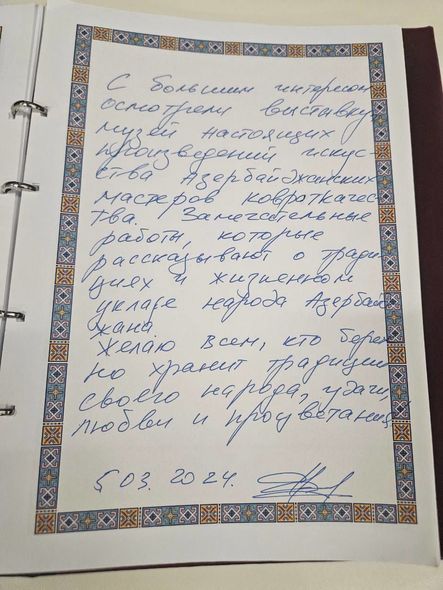 С большим интересом
осмотрели выставку
музей настоящих
произведений искус-
ства Азербайджанских
мастеров ковроткачес-
тва. Замечательные
работы, которые
рассказывают о тради
циях и жизненном
укладе народа Азербай
жана
Желаю всем, кто береж
но хранит традиции
своего народа, удачи,
любви и процветания
5 03. 2024.